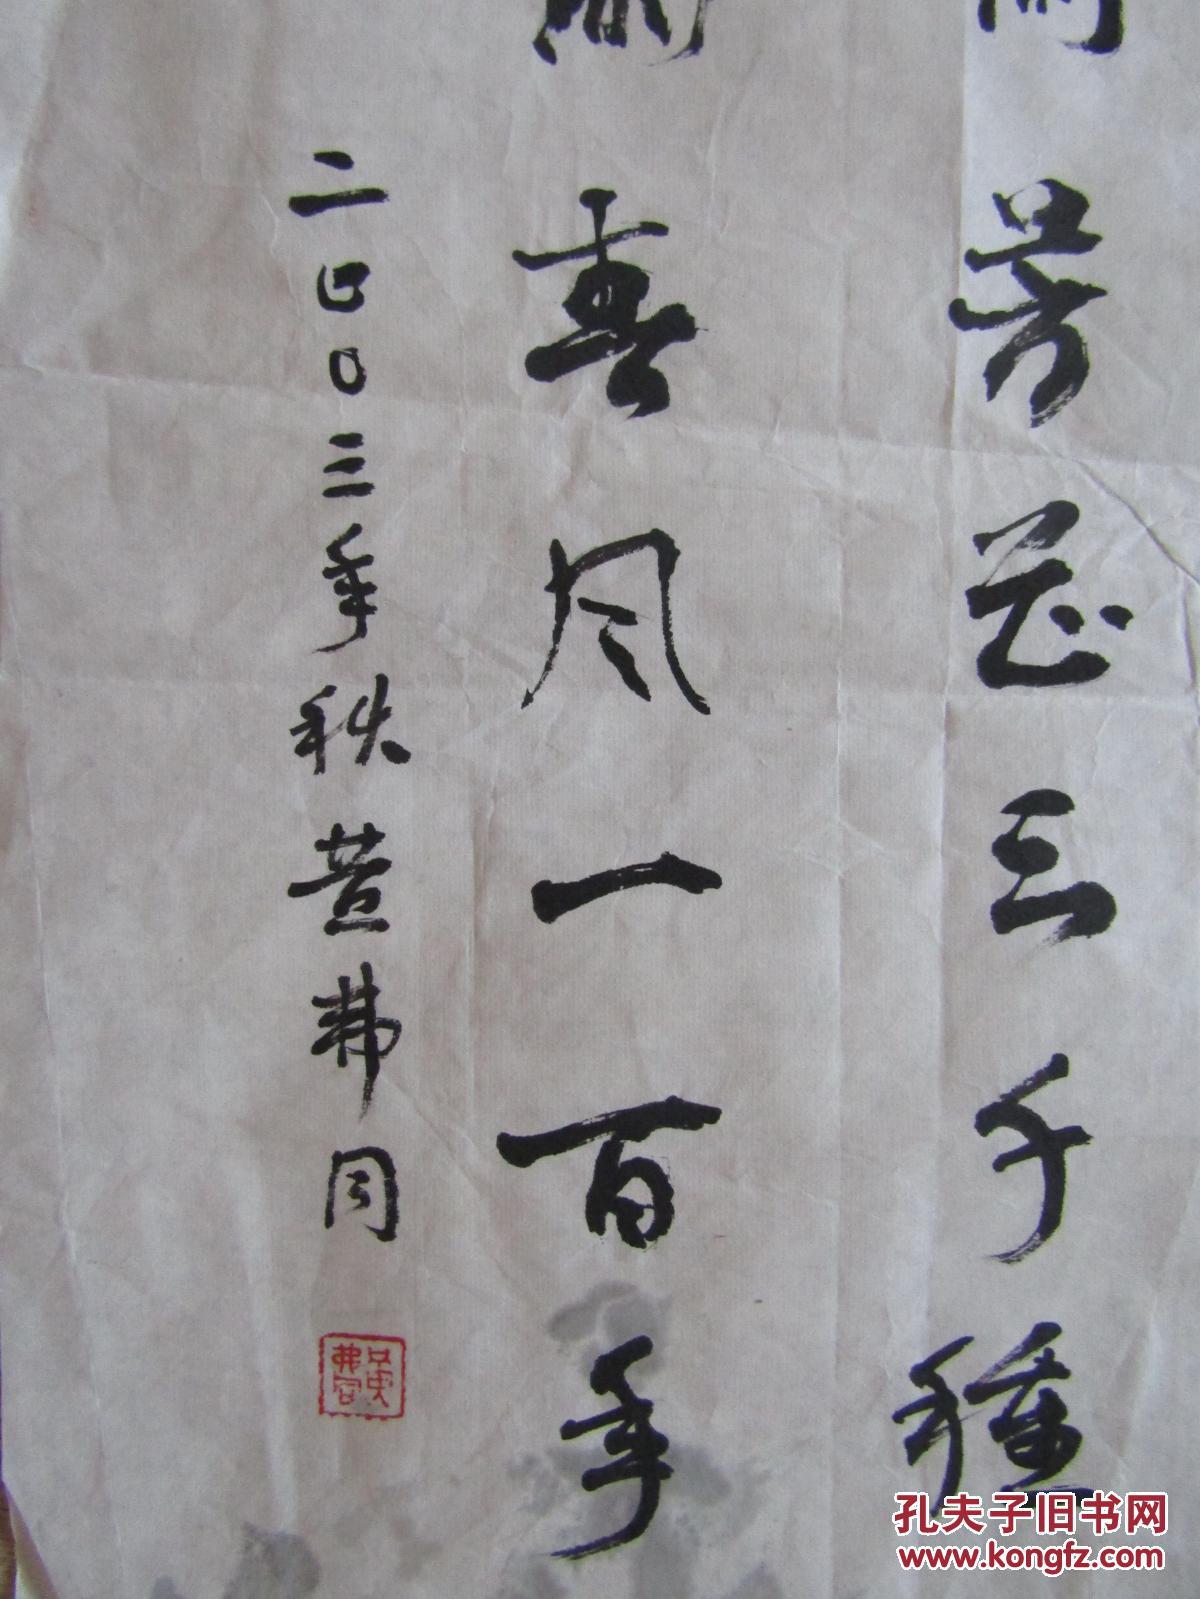 芳花三千種
春风一百年
二〇〇三年秋黄弗同
孔夫子旧书网
www.kongfz.com